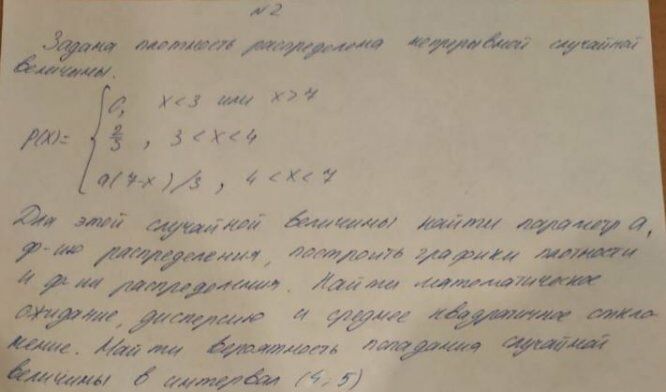 №2
Задана плотность распределена непрерывной случайной
величины.
P(X)= { 0, x<3 или x>7
2/3, 3<x<4
a(7-x)/3, 4<x<7
Для этой случайной величины найти параметр a,
ф-ию распределения, построить графики плотности
и ф-ии распределения. Найти математическое
ожидание, дисперсию и среднее квадратичное откло-
нение. Найти вероятность попадания случайной
величины в интервал (4;5)